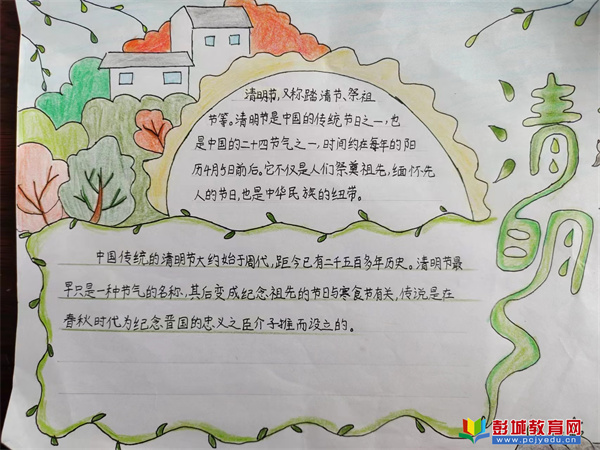 清明
清明节,又称踏清节、祭祖
节等。清明节是中国的传统节日之一,也
是中国的二十四节气之一,时间约在每年的阳
历4月5日前后。它不仅是人们祭奠祖先,缅怀先
人的节日,也是中华民族的纽带。
中国传统的清明节大约始于周代,距今已有二千五百多年历史。清明节最
早只是一种节气的名称,其后变成纪念祖先的节日与寒食节有关,传说是在
春秋时代为纪念晋国的忠义之臣介子推而设立的。
彭城教育网
www.pcjyedu.cn